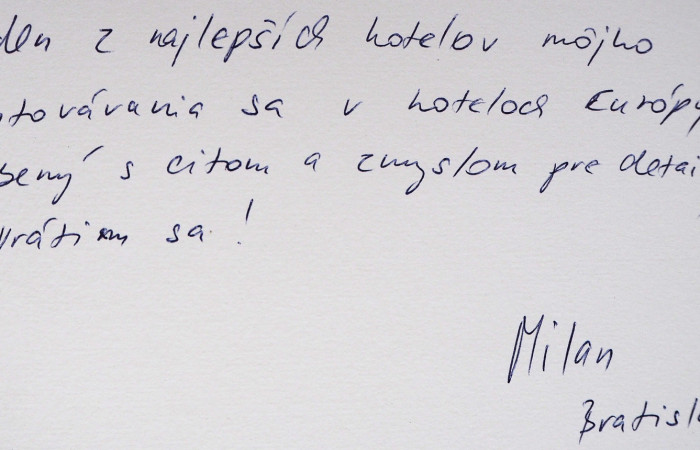 den z najlepších hotelov môjho
továvania sa v hoteloch Európy
bený s citom a zmyslom pre detai
Vrátim sa!
Milan
Bratisl